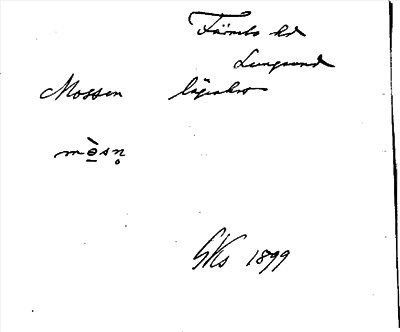 Färnebo hd
Lungsund
Mossen lägenhet
mò̱sn̥
GKs 1899